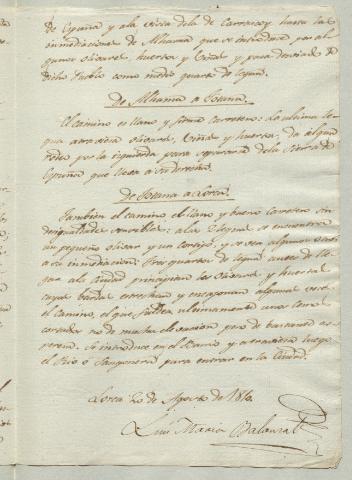 de España y ala vista dela de Carrascoy hasta las
inmediaciones de Alhama que se introduce por al
gunos olivares, huertas y Viñas y pasa desviado de
dicho Pueblo como medio quarto de legua.
De Alhama a Totana.
El camino es llano y sitúa carretero: La ultima le
gua atraviesa olivares, Viñas y huertas, da algun
rodeo por la izquierda para separarse dela Sierra de
España que lleva a su derecha.
De Totana a Lorca.
Tambien el camino es llano y bueno carretero sin
desigualdades sensibles: a las 2 leguas se encuentra
un pequeño olivar y un cortijo, y se ven algunos otros
a su inmediacion. Tres quartos de legua antes de lle
gar ala Ciudad principian los olivares y huertas
cuyas bardas estrechan y encajonan algunas veces
el camino, el que faldea ultimamente unas lomas
cortadas no de mucha elevacion pero de bastante as
pereza. Se introduce en el Barrio y atraviesa luego
el Rio o Sangonera para entrar en la Ciudad.
Lorca 20 de Agosto de 1810.
Luis Maria Balanzat